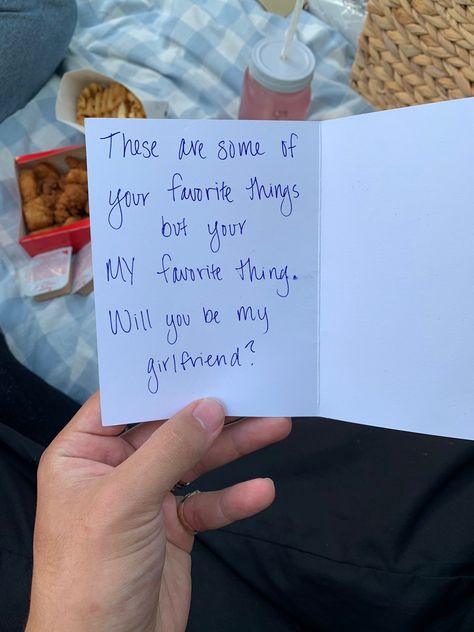 These are some of
your favorite things
but your
MY favorite thing.
Will you be my
girlfriend?